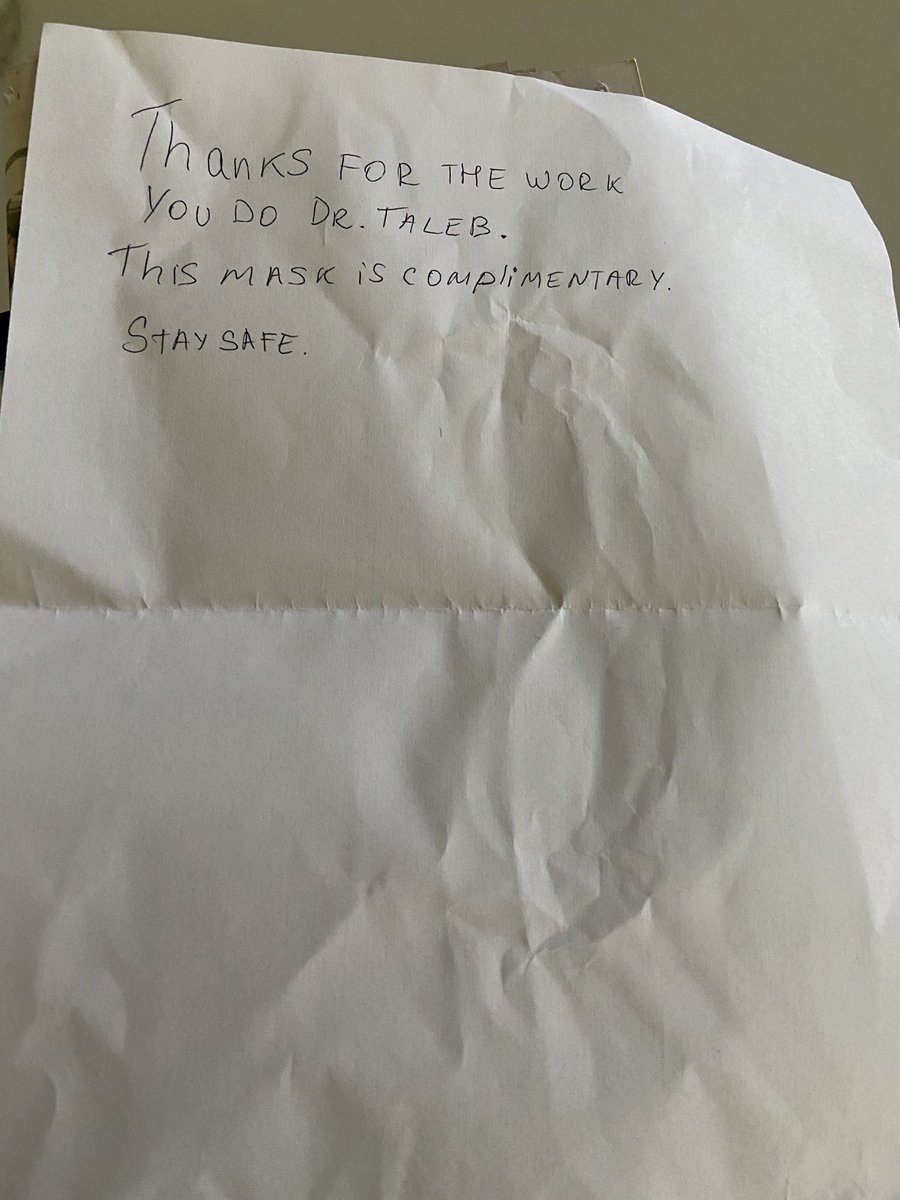 Thanks FOR THE WORK
YOU DO DR. TALEB.
THIS MASK iS COMPliMENTARY.
STAY SAFE.